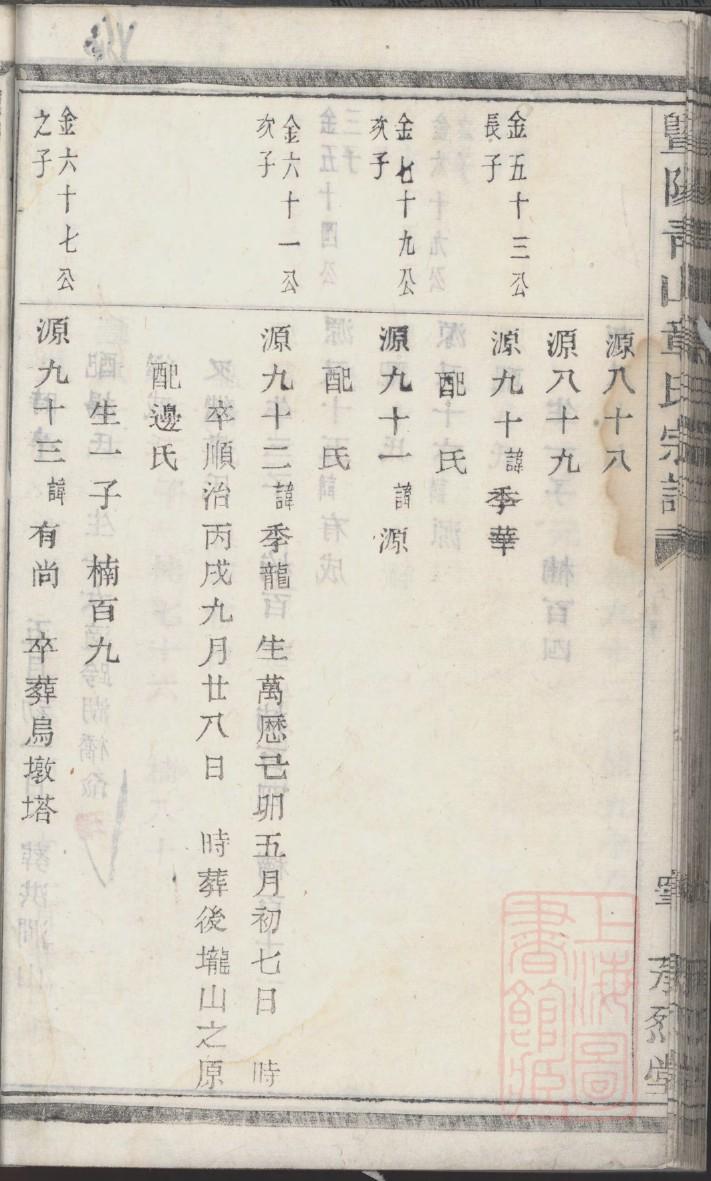 暨陽青山章氏宗譜
承烈堂
源八十八
源八十九
金五十三公
長子
源九十諱季華
配 氏
金七十九公
次子
源九十一諱源
配 氏
金六十一公
次子
源九十二諱季龍 生萬歷己卯五月初七日 時
卒順治丙戌九月廿八日 時葬後壠山之原
配邊氏
生一子 楠百九
金六十七公
之子
源九十三諱有尚 卒葬烏墩塔
上海圖書館藏